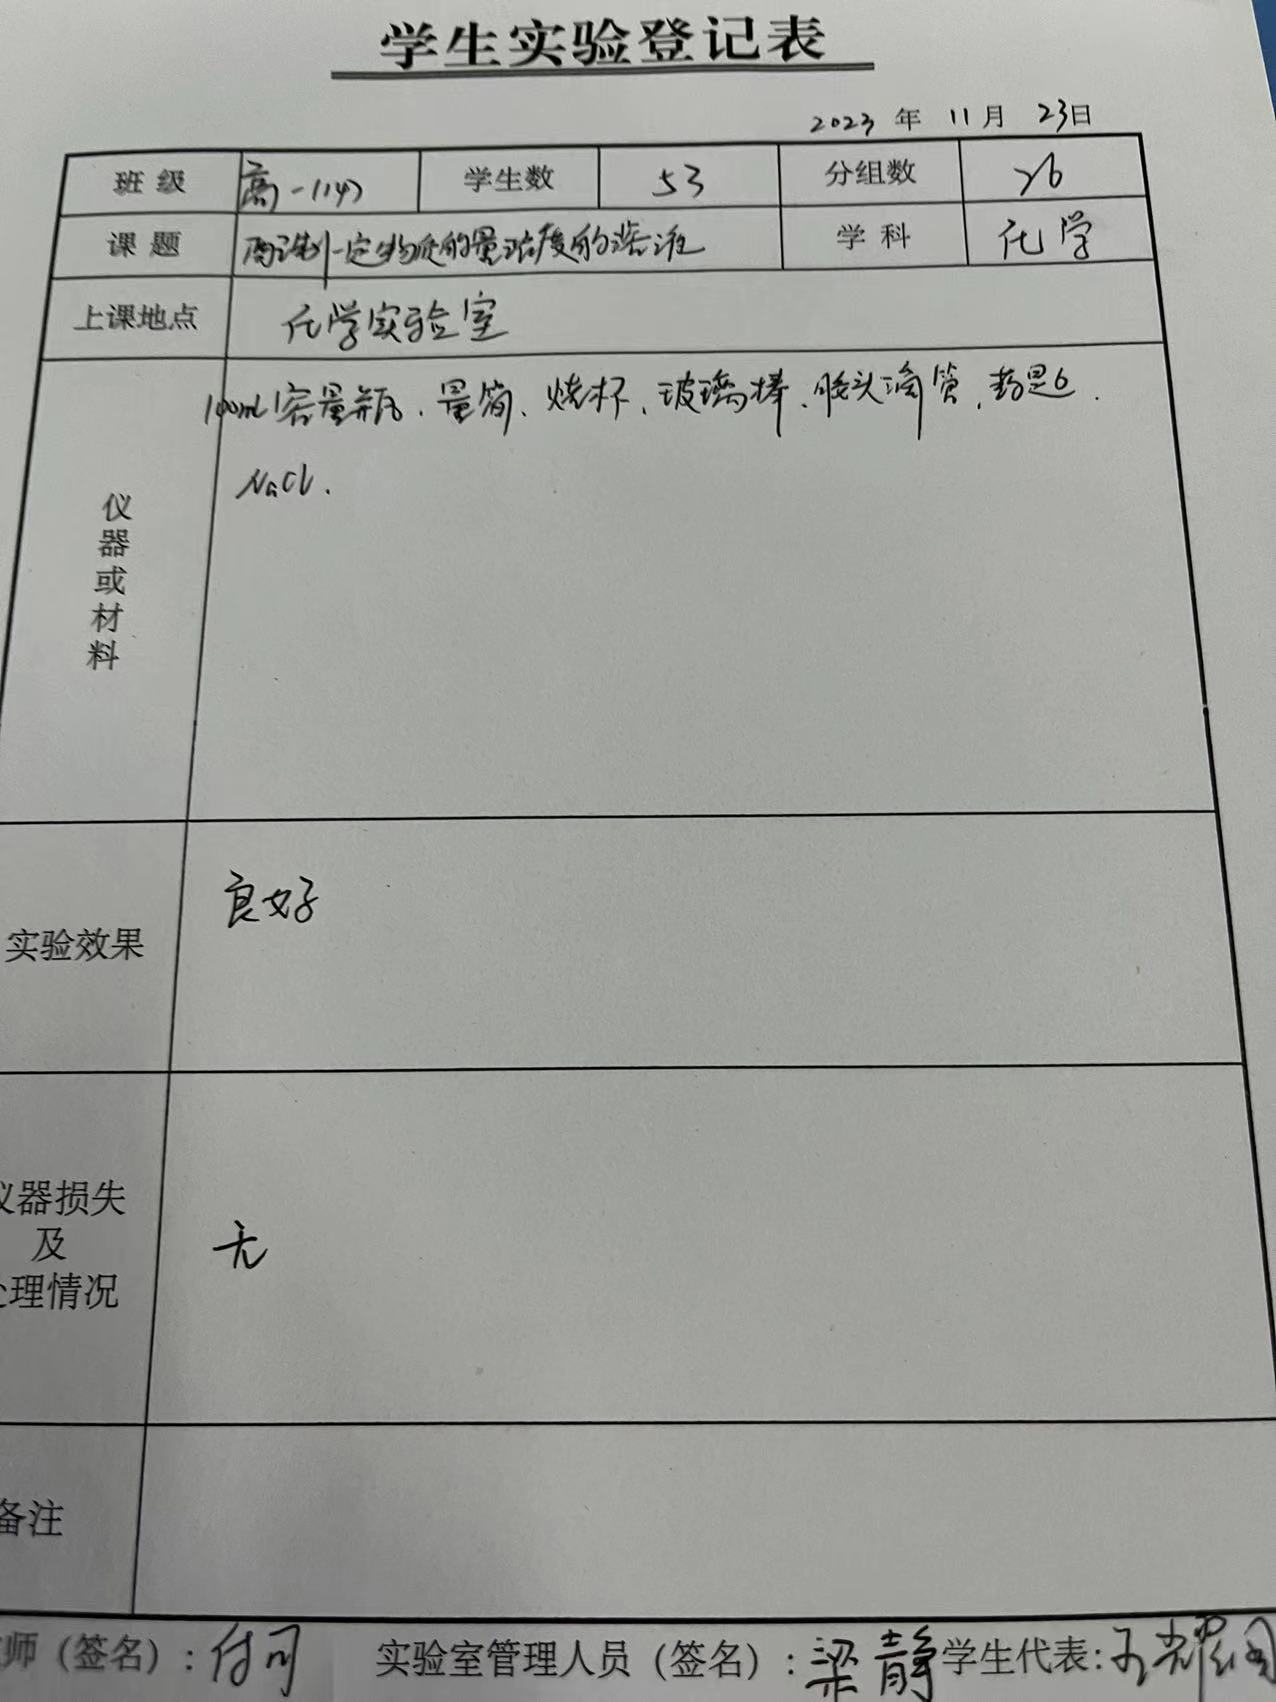 学生实验登记表
2023 年 11 月 23日
班 级 高一(14) 学生数 53 分组数 26
课 题 配制一定物质的量浓度的溶液 学 科 化学
上课地点 化学实验室
仪器或材料 100mL容量瓶、量筒、烧杯、玻璃棒、胶头滴管、药匙、
NaCl.
实验效果 良好
仪器损失
及 无
处理情况
备注
师（签名）: 付可 实验室管理人员（签名）: 梁静 学生代表: